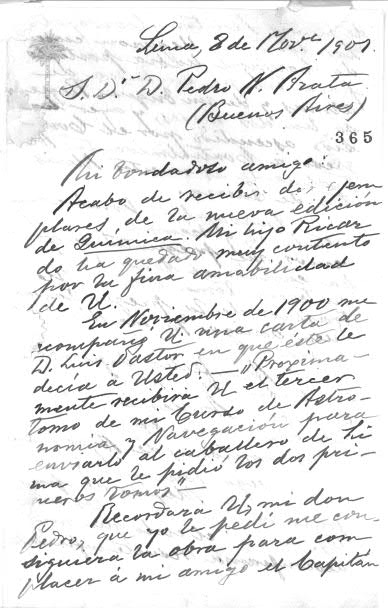 Lima, 8 de Nov.e 1901.
S. Dr. D. Pedro N. Arata
(Buenos Aires)
365
Mi bondadoso amigo:
Acabo de recibir dos ejem
plares de la nueva edición
de Química. Mi hijo Ricar
do ha quedado muy contento
por la fina amabilidad
de U.
En Noviembre de 1900 me
acompañó U. una carta de
D. Luis Pastor en que éste le
decía á Usted: — "Proxima-
mente recibirá U el tercer
tomo de mi Curso de Astro-
nomía y Navegación para
enviarlo al caballero de Li
ma que le pidió los dos pri-
meros tomos"—
Recordará U, mi don
Pedro, que yo le pedí me con-
siguiera la obra para com
placer á mi amigo el Capitán